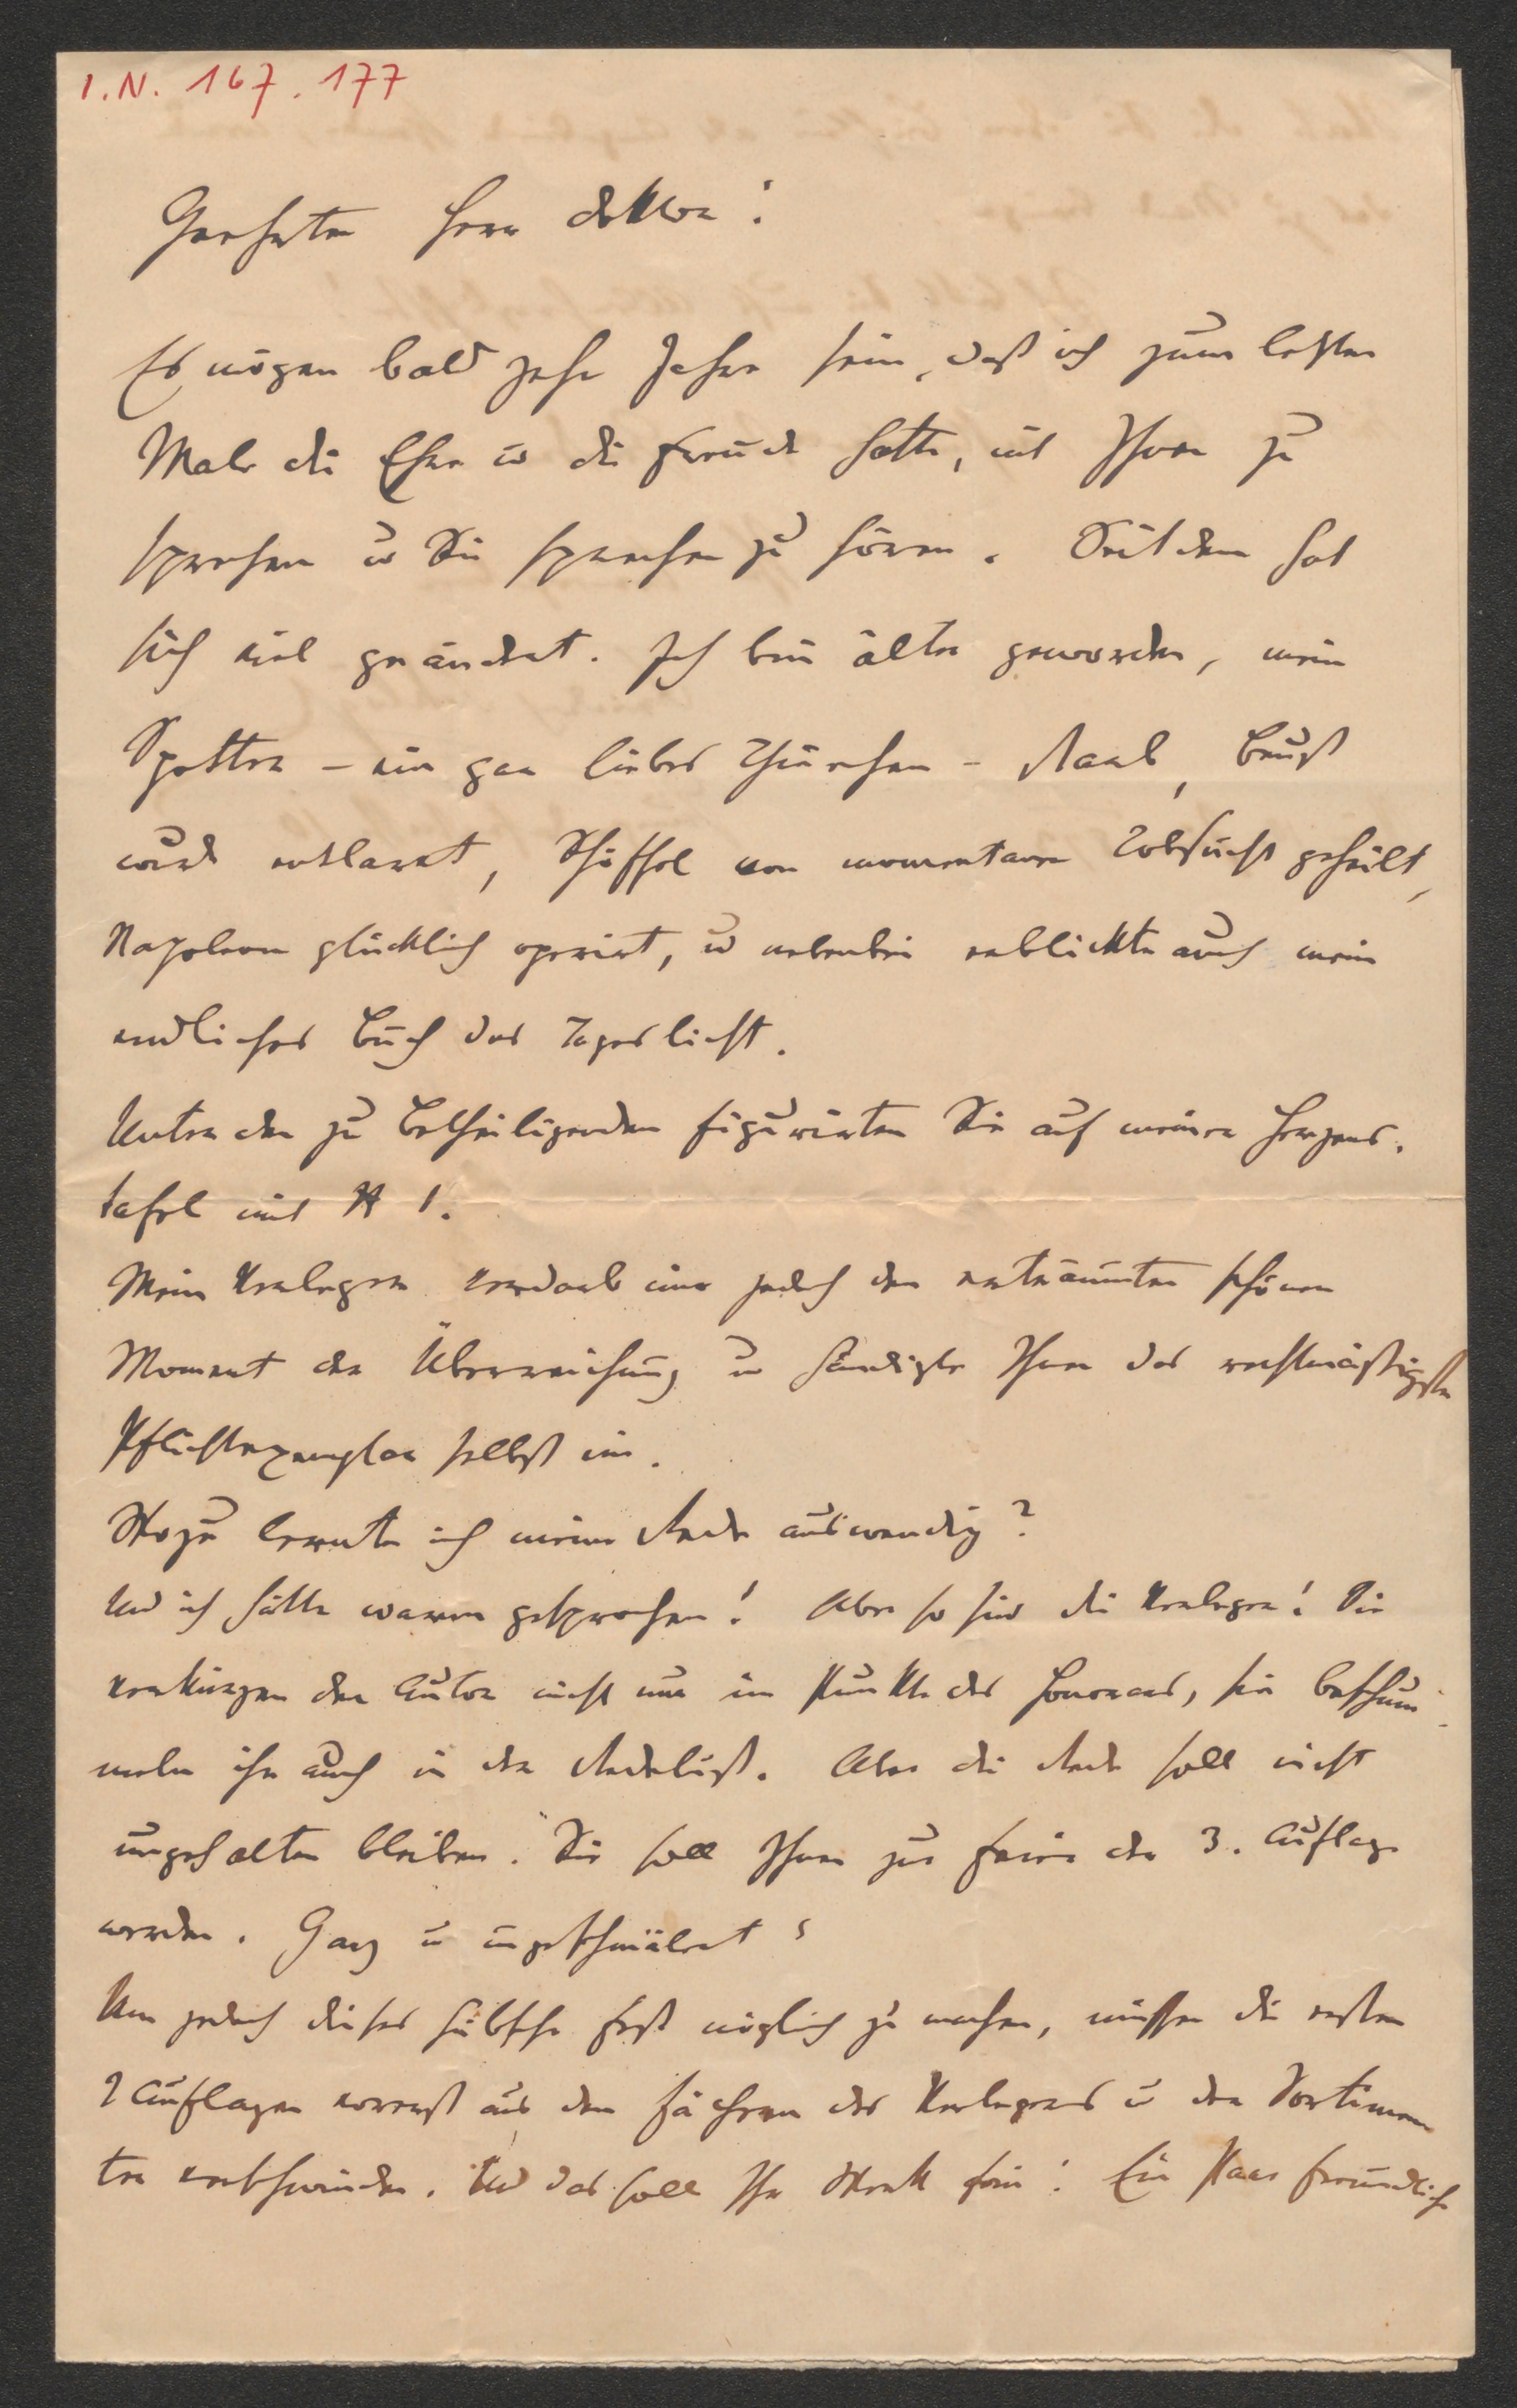 I.N. 167.177
Geehrter Herr Doktor!
Es mögen bald zehn Jahre sein, daß ich zum letzten
Male die Ehre u die Freude hatte, mit Ihnen zu
sprechen u Sie sprechen zu hören. Seitdem hat
sich viel geändert. Ich bin älter geworden, mein
Spotter – ein gar liebes Thierchen – starb, Beust
ward entlarvt, Schöffel von momentaner Tobsucht geheilt,
Napoleon glücklich operirt, u nebenbei erblickte auch mein
endliches Buch das Tageslicht.
Unter den zu Betheiligenden figurirten Sie auf meiner Herzens-
tafel mit № 1.
Mein Verleger verdarb mir jedoch den erträumten schönen
Moment der Überreichung u händigte Ihnen das rechtmäßigste
Pflichtexemplar selbst ein.
Wozu lernte ich meine Rede auswendig?
Und ich hätte warm gesprochen! Aber so sind die Verleger! Sie
verkürzen den Autor nicht nur im Punkte des Honorars, sie beschum-
meln ihn auch in der Redelust. Aber die Rede soll nicht
ungehalten bleiben. Sie soll Ihnen zur Feier der 3. Auflage
werden. Ganz u ungeschmälert!
Um jedoch dieses hübsche Fest möglich zu machen, müssen die ersten
2 Auflagen vorerst aus den Fächern des Verlegers u der Sortimen
ter verschwinden. Und das soll Ihr Werk sein! Ein Paar freundliche